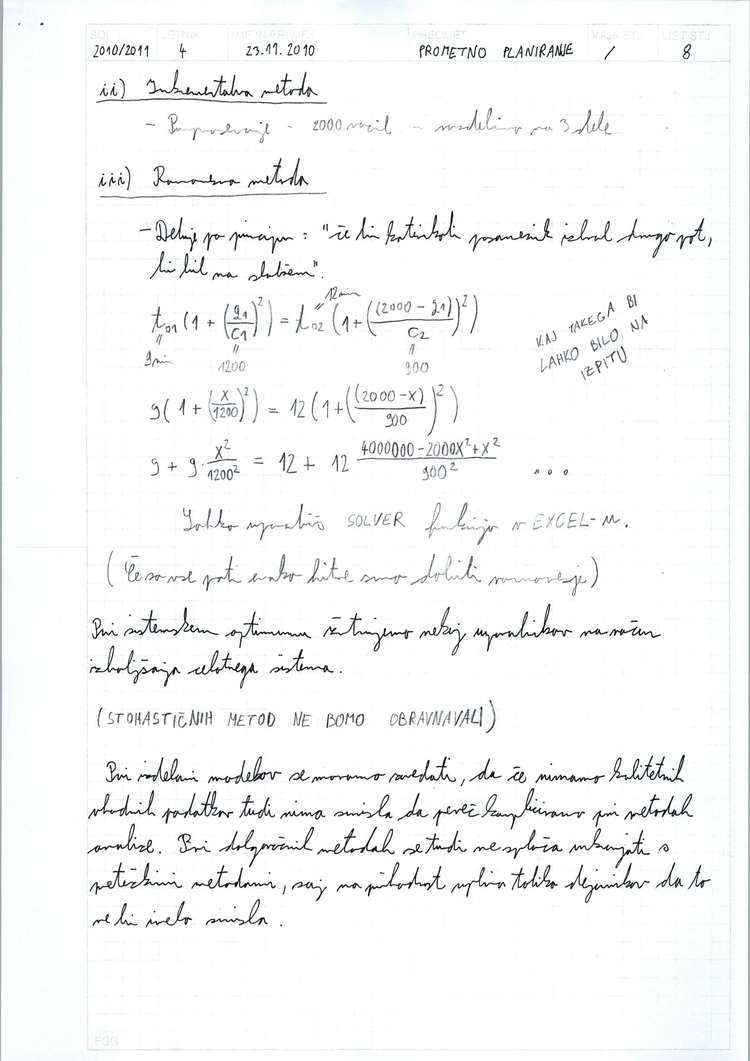 2010/2011 4 23.11.2010 PROMETNO PLANIRANJE / 8
ii) Inkrementalna metoda
- Povpraševanje - 2000 vozil - razdelimo na 3 dele
iii) Ravnovesna metoda
- Deluje po principu : "če bi katerikoli posameznik izbral drugo pot,
bi bil na slabšem".
12 min
t₀₁ (1 + (g₁/C₁)²) = t₀₂ (1 + ((2000 - g₁)/C₂)²)
9 min 1200 900
KAJ TAKEGA BI
LAHKO BILO NA
IZPITU
9(1 + (X/1200)²) = 12(1 + ((2000 - X)/900)²)
9 + 9 · X²/1200² = 12 + 12 4000000 - 2000X² + X²/900² ...
Lahko uporabiš SOLVER funkcijo v EXCEL-u.
(Če so vse poti enako hitre smo dobili ravnovesje)
Pri sistemskem optimumu žrtvujemo nekaj uporabnikov na račun
izboljšanja celotnega sistema.
(STOHASTIČNIH METOD NE BOMO OBRAVNAVALI)
Pri izdelavi modelov se moramo zavedati, da če nimamo kvalitetnih
vhodnih podatkov tudi nima smisla da preveč kompliciramo pri metodah
analize. Pri dolgoročnih metodah se tudi ne splača ukvarjati s
pretežkimi metodami, saj na prihodnost vpliva toliko dejavnikov da to
ne bi imelo smisla.
FGG